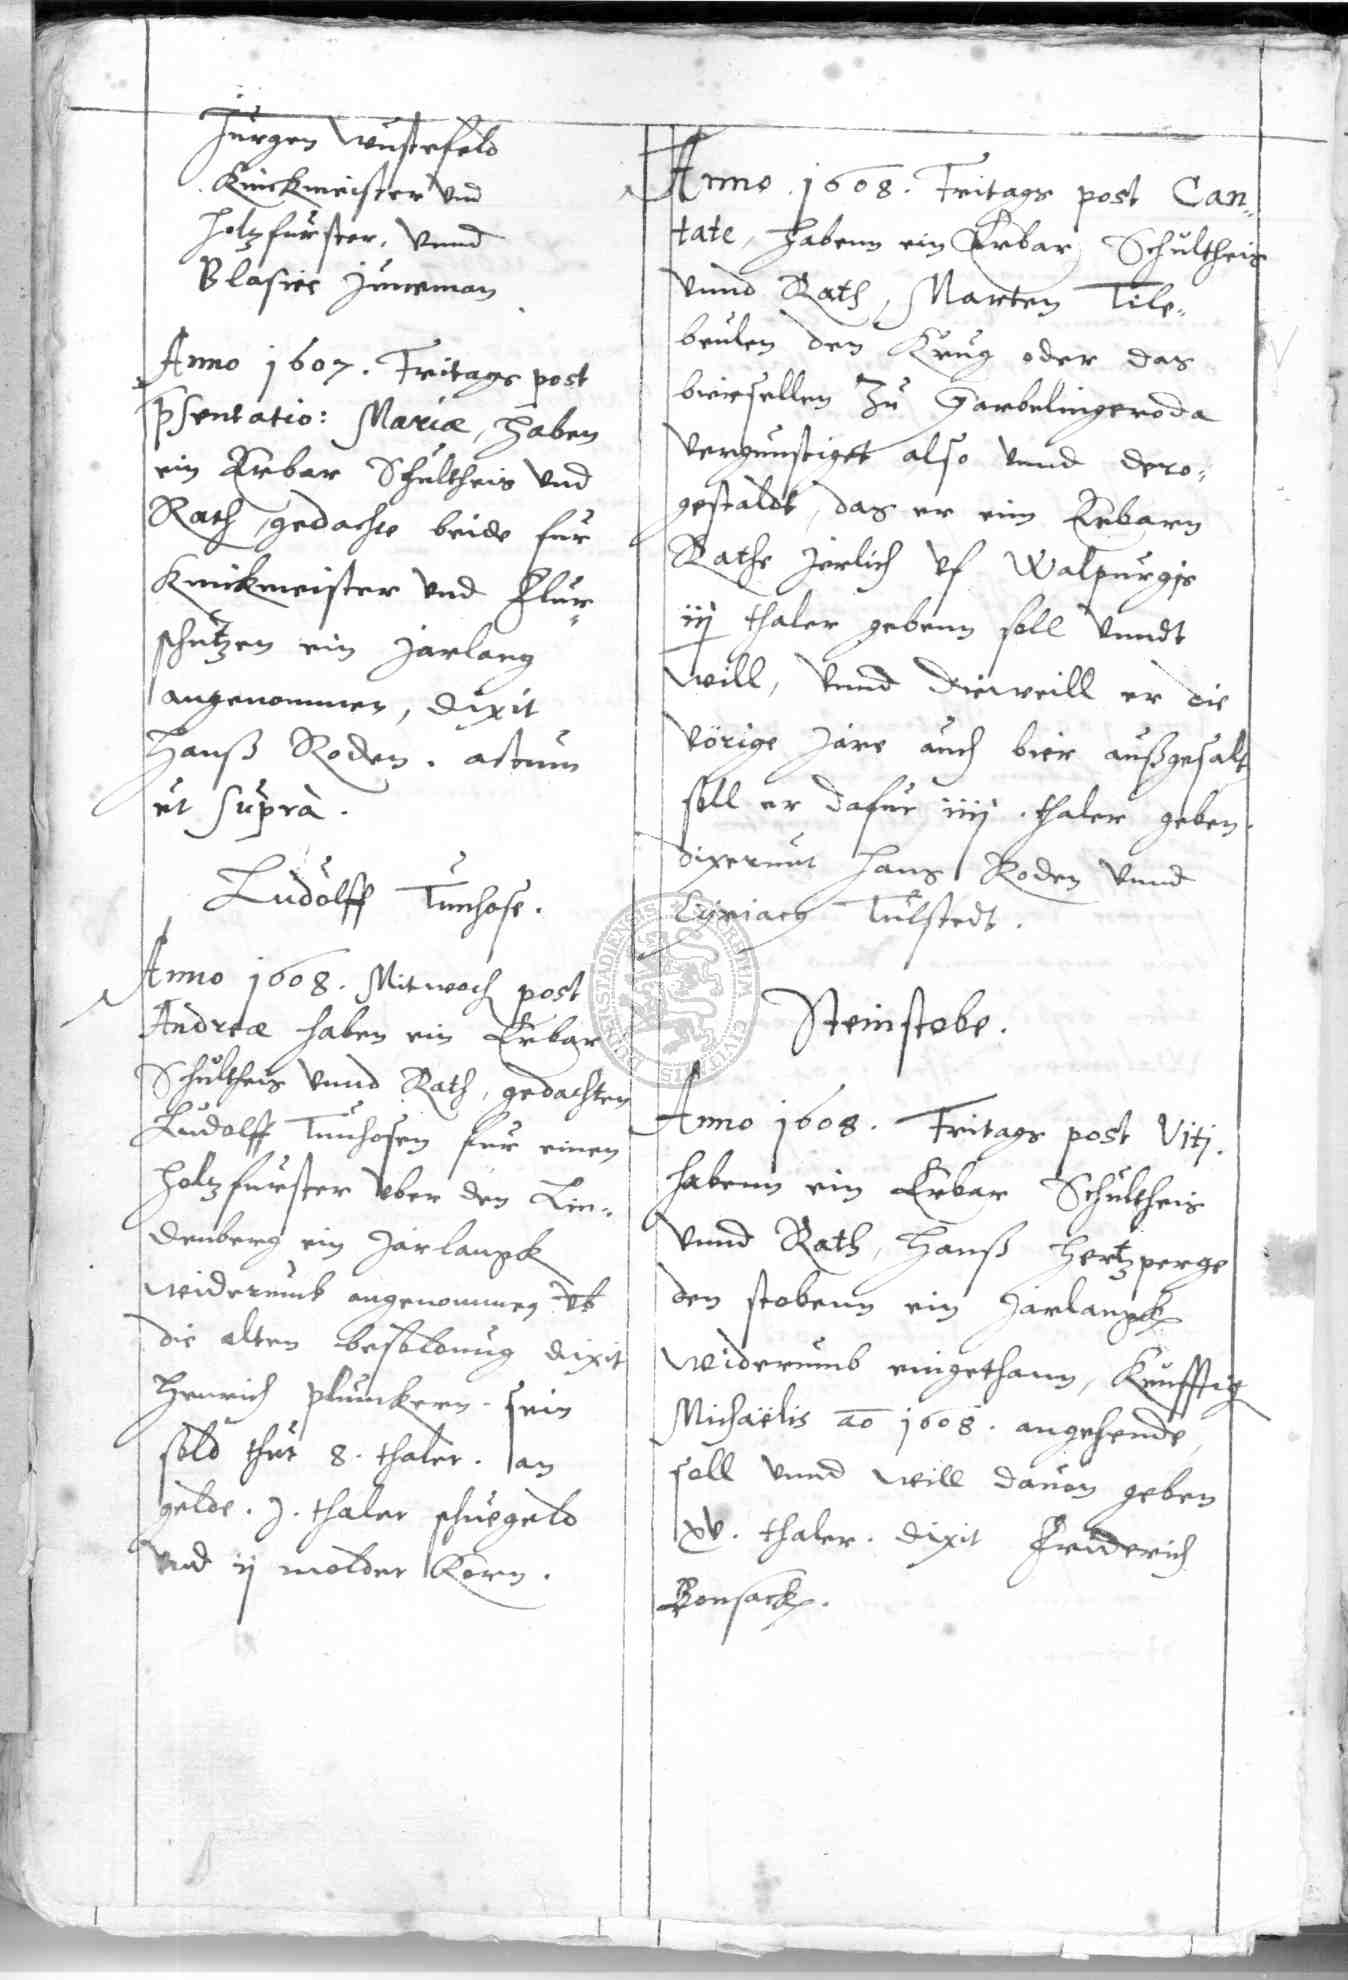 Jurgen Wustefeld
Knickmeister und
holtzfurster, unnd
Blasies Juneman
Anno 1607. Fritags post
psentatio: Mariæ, haben
ein Erbar Schultheis und
Rath, gedachte beide fur
Knickmeister und Flur=
schutzen ein jarlang
angenommen, dixit
Hanß Roden. actum
ut supra.
Ludolff Tunhose.
Anno 1608. Mitwoch post
Andreæ haben ein Erbar
Schultheis unnd Rath, gedachten
Ludolff Tunhosen fur einen
holtzfurster uber den Lin=
denberg ein Jarlangk
widerumb angenommen
die alten besoldung dixit
Henrich plunckern. sein
sold thut 8. thaler. an
gelde. j. thaler schuegeld
und ij molder Korn.
Anno 1608. Fritags post Can=
tate, habenn ein Erbar Schultheis
unnd Rath, Marten Tile=
beulen den Krug oder das
biersellen Zu Garbelingeroda
vergunstiget also unnd dero=
gestaldt, das er eim Erbarn
Rathe Jerlich uf Walpurgis
iij thaler gebenn soll unndt
will, unnd dieweill er die
vörige Jare auch bier außgesalt
soll er dafur iiij. thaler geben.
dixerunt Hans Roden unnd
Cyriacy Tulstedt.
Steinstobe.
Anno 1608. Fritags post Viti.
habenn ein Erbar Schultheis
unnd Rath, Hanß Hertzperge
den stobenn ein Jarlangk
widerumb eingethann, Kunfftig
Michaëlis ao 1608. angehende,
soll unnd will dauon geben
xv. thaler. dixit Friderich
Bonsack.